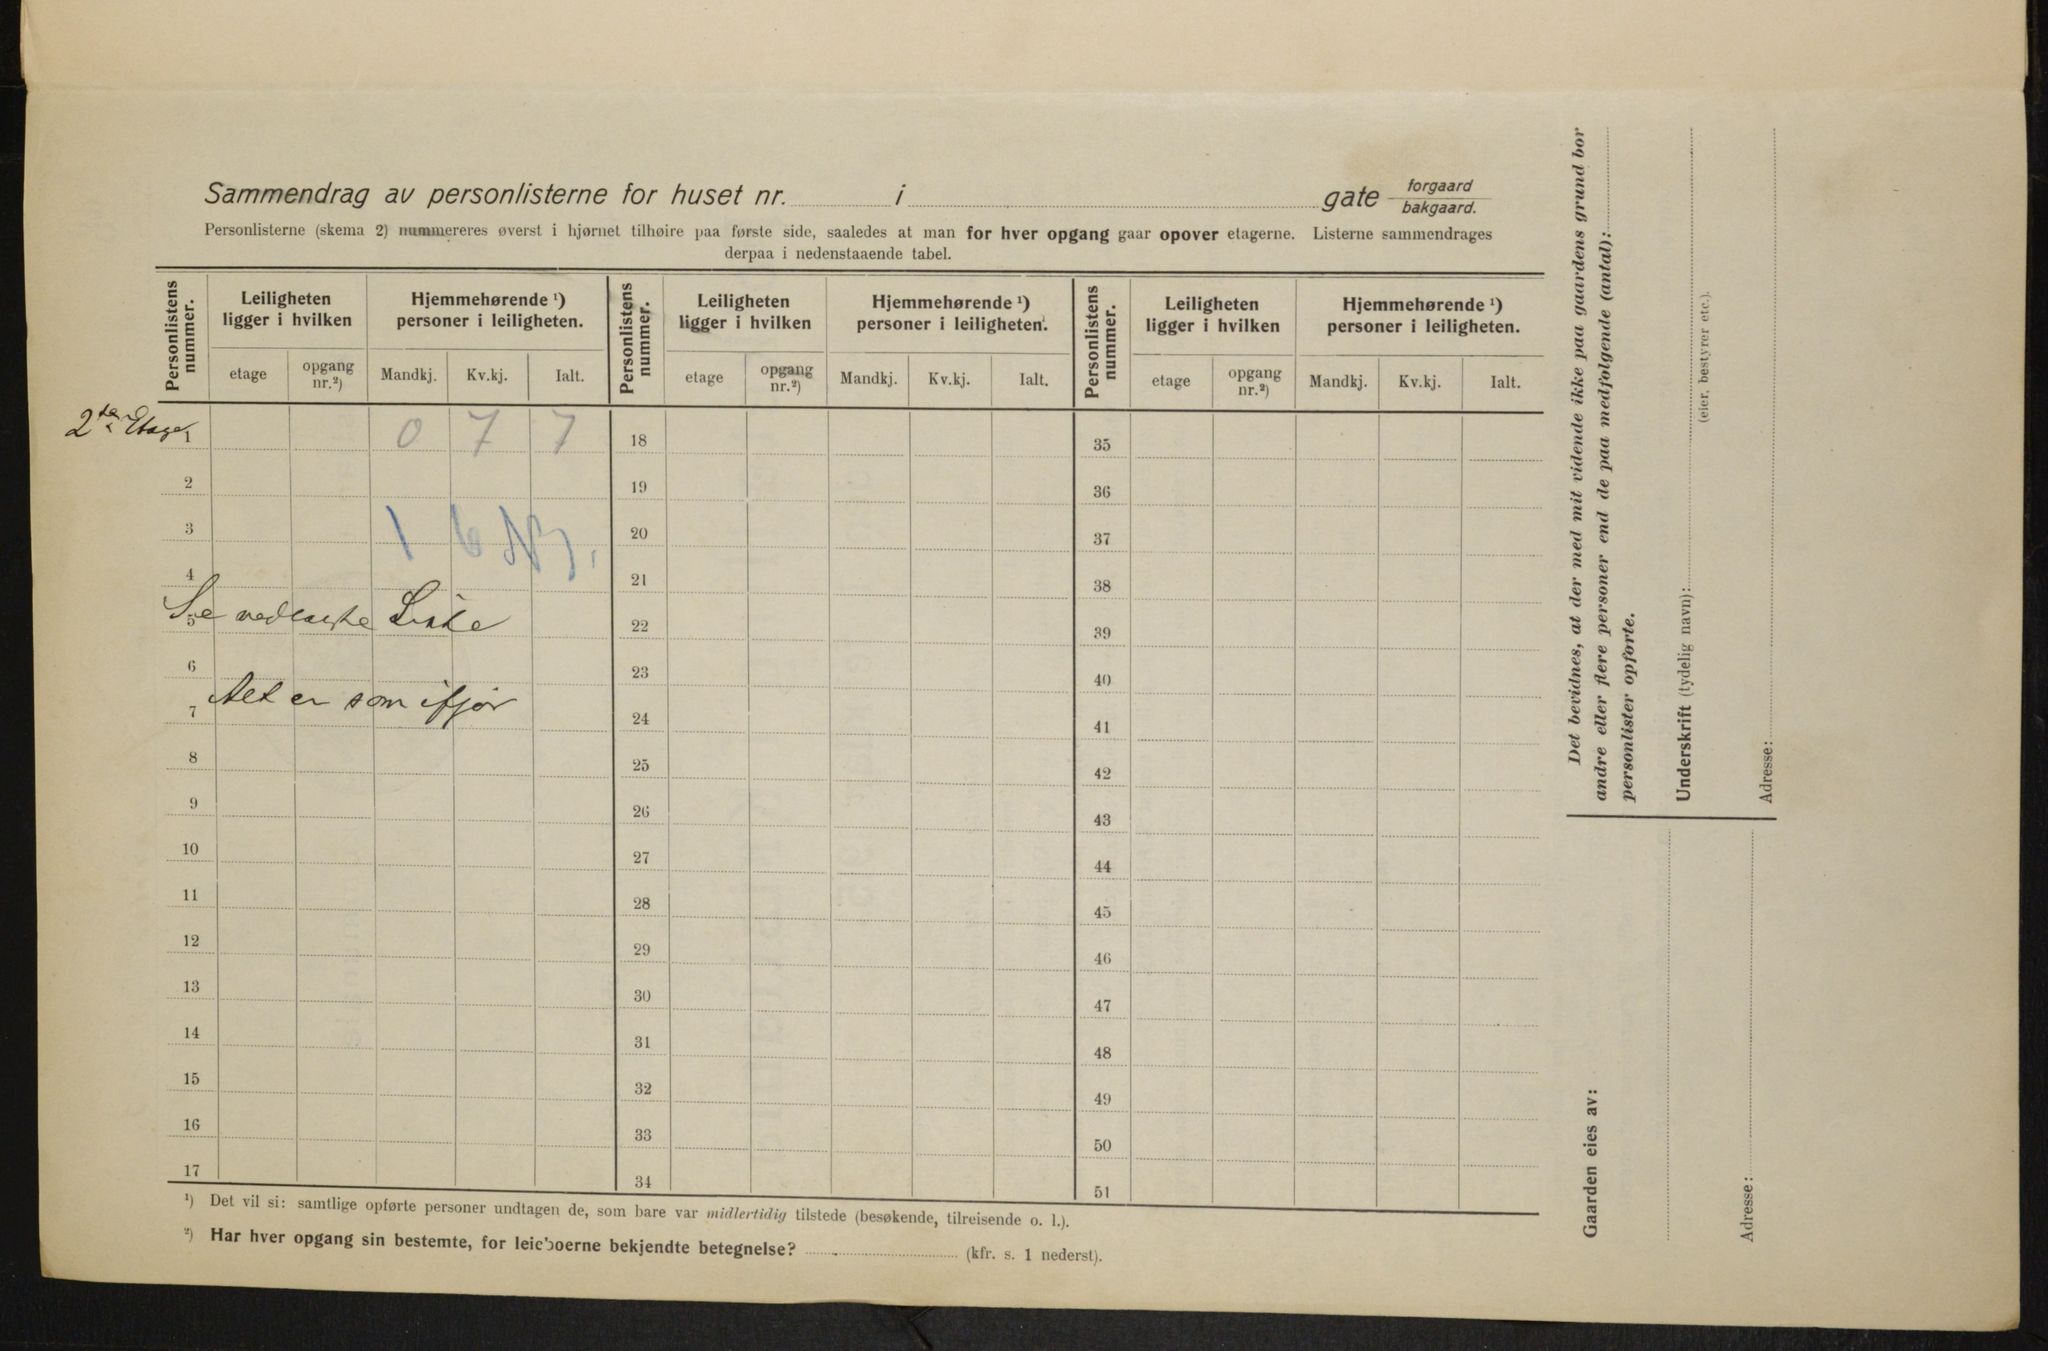 Sammendrag av personlisterne for huset nr. i gate forgaard
bakgaard.
Personlisterne (skema 2) nummereres øverst i hjørnet tilhøire paa første side, saaledes at man for hver opgang gaar opover etagerne. Listerne sammendrages
derpaa i nedenstaaende tabel.
Personlistens nummer. Leiligheten ligger i hvilken Hjemmehørende ¹) personer i leiligheten. Personlistens nummer. Leiligheten ligger i hvilken Hjemmehørende ¹) personer i leiligheten. Personlistens nummer. Leiligheten ligger i hvilken Hjemmehørende ¹) personer i leiligheten.
etage opgang nr.²) Mandkj. Kv.kj. Ialt. etage opgang nr.²) Mandkj. Kv.kj. Ialt. etage opgang nr.²) Mandkj. Kv.kj. Ialt.
2de Etage 1 0 7 7 18 35
2 19 36
3 1 6 20 37
4 21 38
Se vedlagte Liste
5 22 39
6 23 40
Alt er som ifjor
7 24 41
8 25 42
9 26 43
10 27 44
11 28 45
12 29 46
13 30 47
14 31 48
15 32 49
16 33 50
17 34 51
¹) Det vil si: samtlige opførte personer undtagen de, som bare var midlertidig tilstede (besøkende, tilreisende o. l.).
²) Har hver opgang sin bestemte, for leieboerne bekjendte betegnelse? (kfr. s. 1 nederst).
Det bevidnes, at der med mit vidende ikke paa gaardens grund bor
andre eller flere personer end de paa medfølgende (antal):
personlister opførte.
Underskrift (tydelig navn):
(eier, bestyrer etc.).
Adresse:
Gaarden eies av:
Adresse: